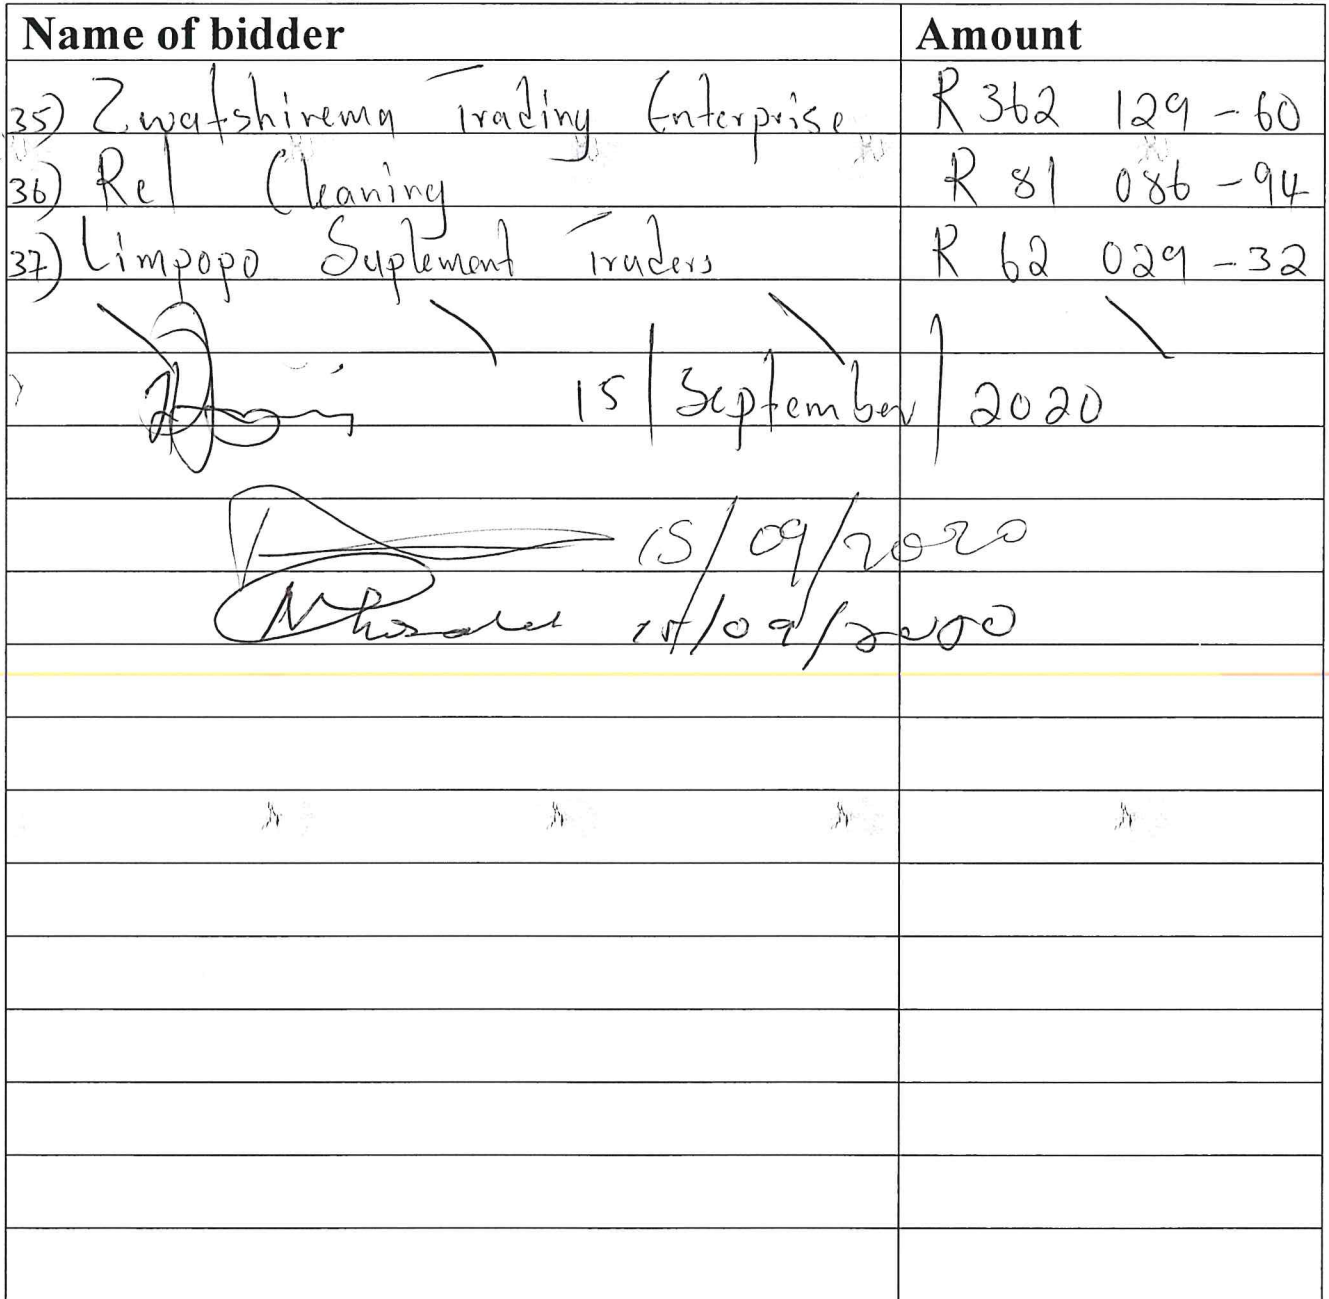 Name of bidder Amount
35) Zwatshirema Trading Enterprise R 362 129 - 60
36) Rel Cleaning R 81 086 - 94
37) Limpopo Suplement Traders R 62 029 - 32
15 / September / 2020
15/09/2020
15/09/2020